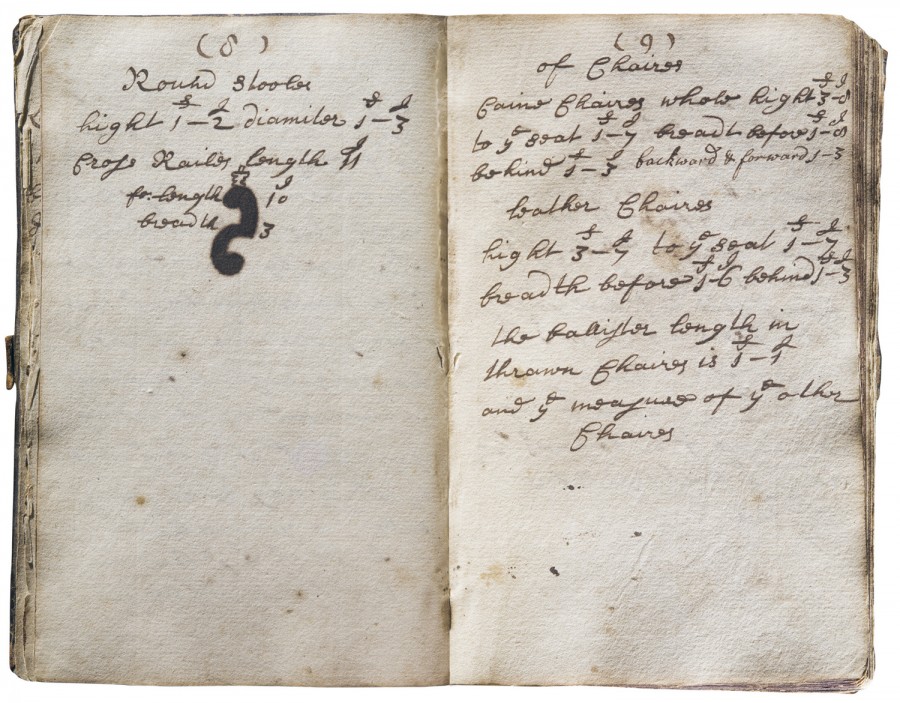 (8)
Round stooles
hight 1–2 diamiter 1–3
Crose Railes length 11
fo: length 10
breadth 3
(9)
of Chaires
Caine Chaires whole hight 3–8
to yᵉ seat 1–7 breadt before 1–8
behind 1–3 backward & forward 1–3
leather Chaires
hight 3–7 to yᵉ seat 1–7
breadth before 1–6 behind 1–3
the ballister length in
thrawn Chaires is 1–1
and yᵉ measure of yᵉ other
Chaires